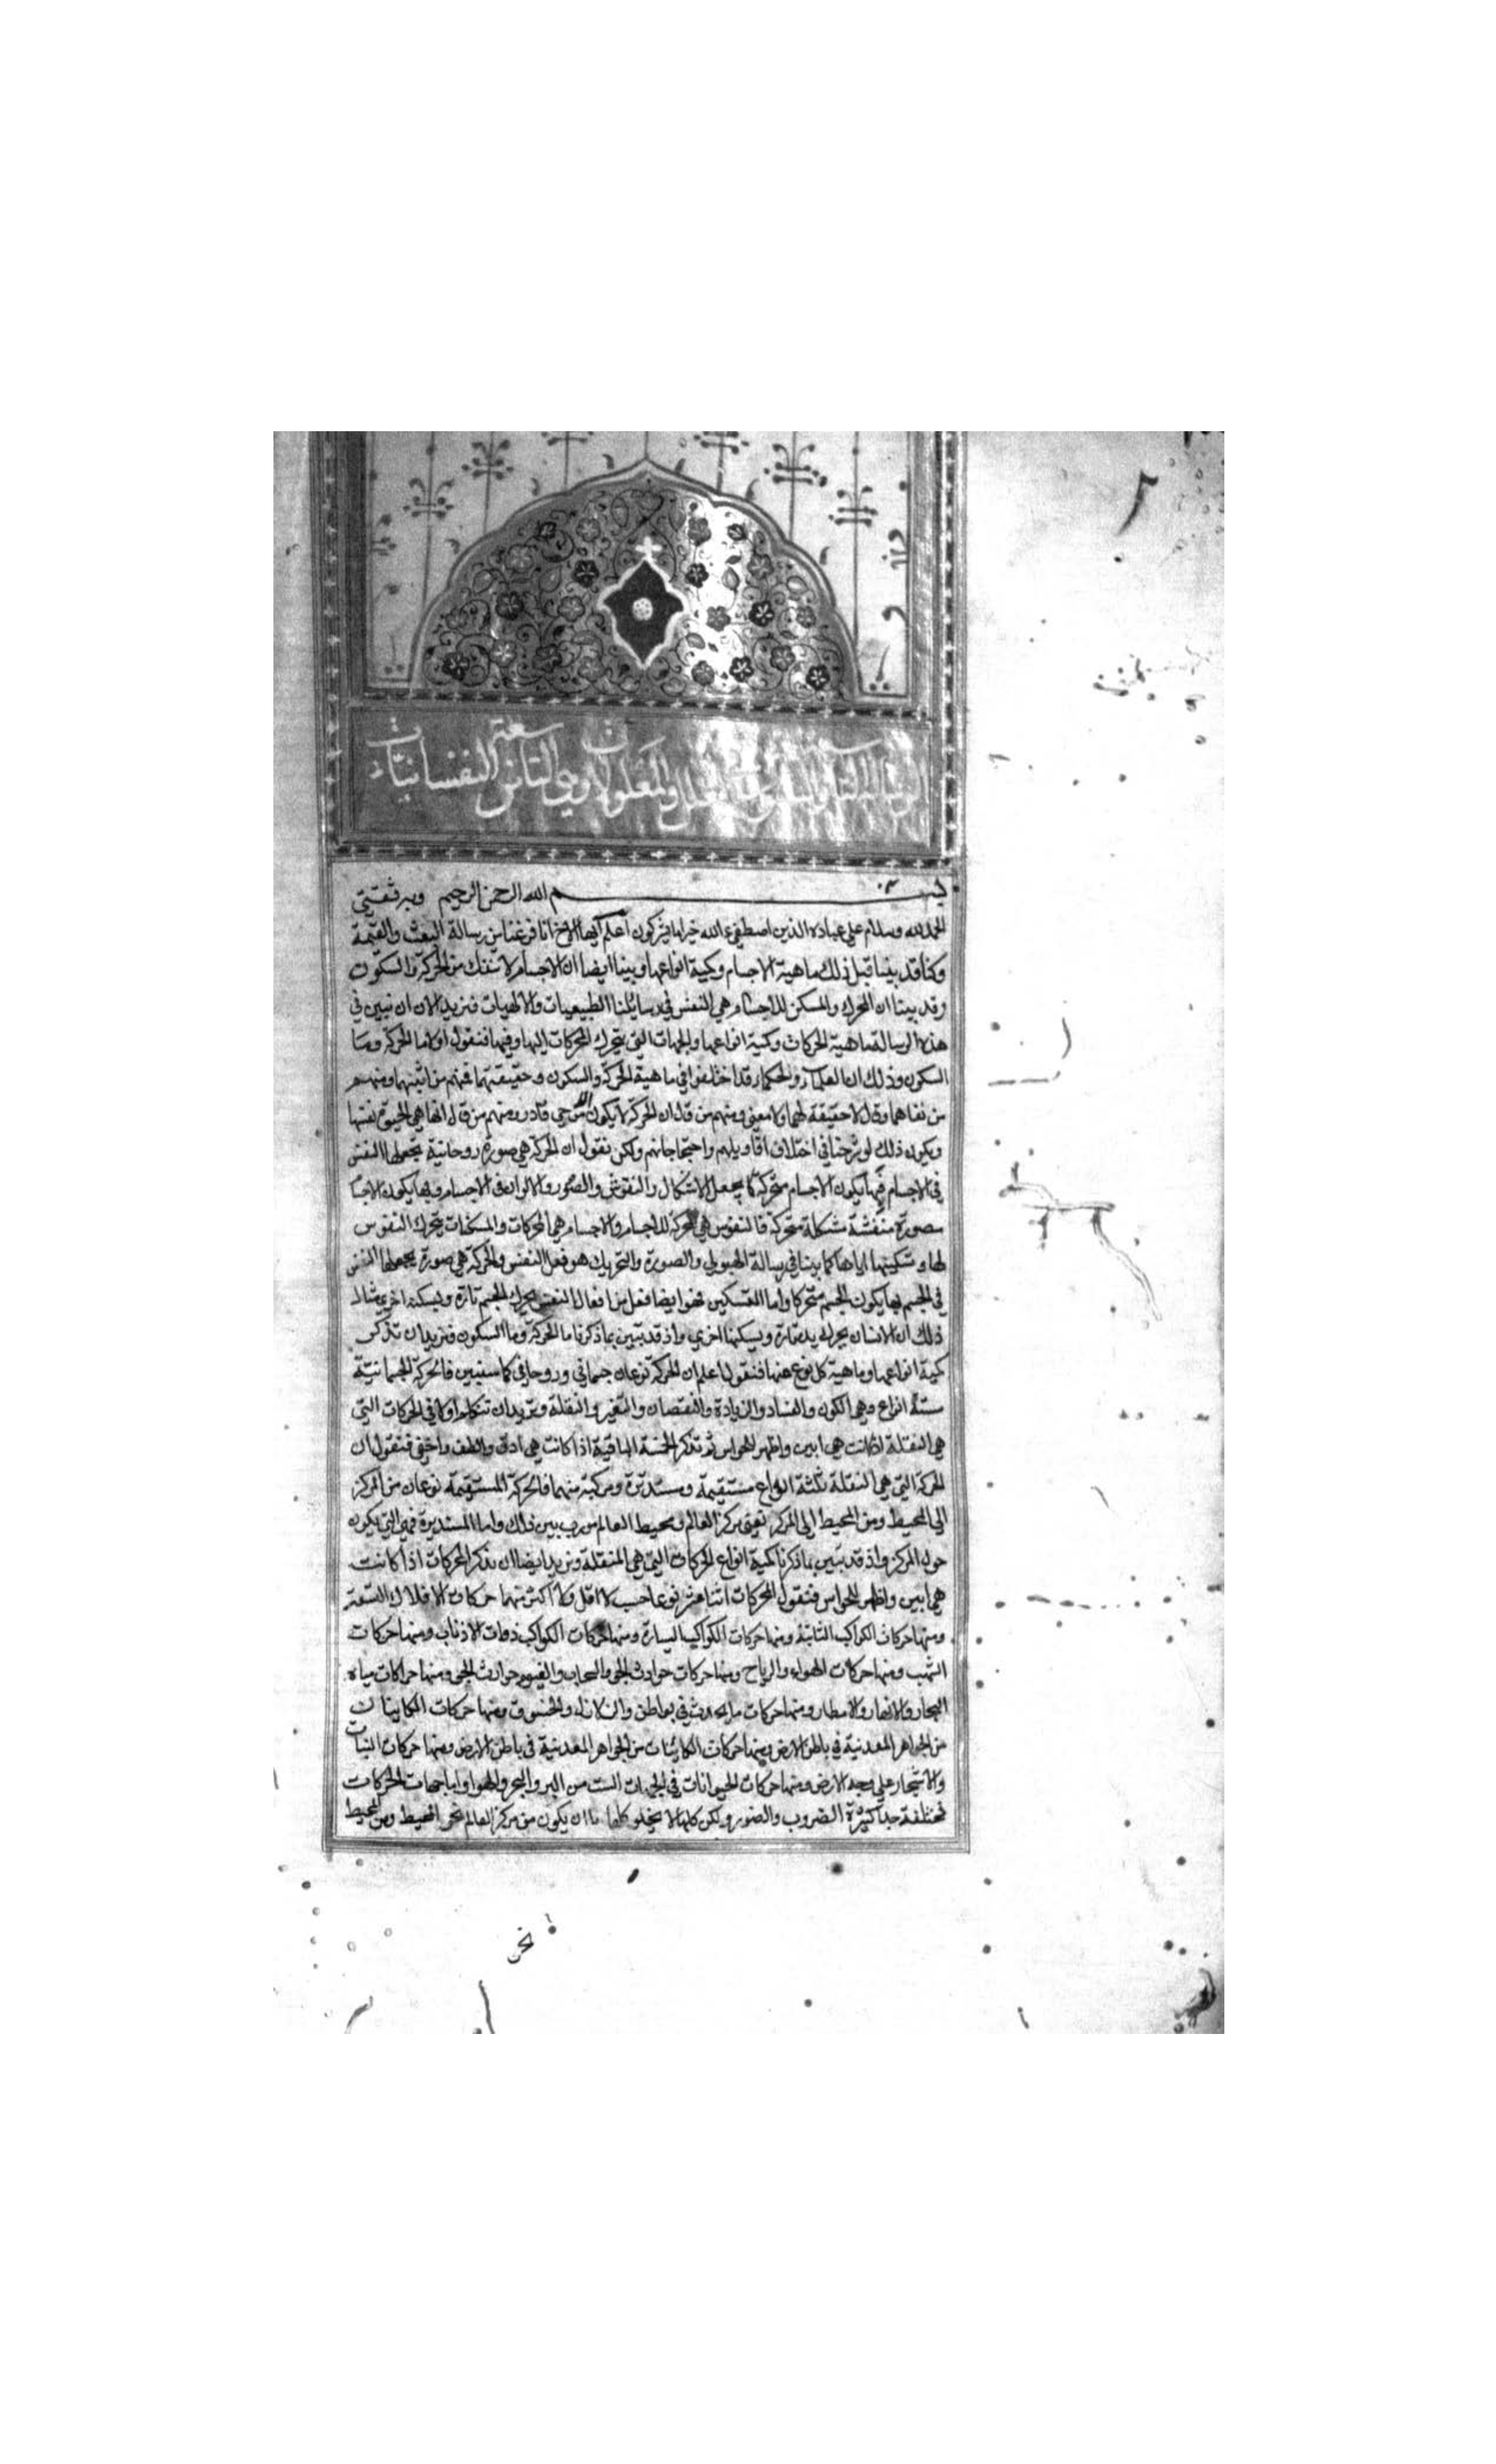 ٢
بسم الله الرحمن الرحيم وبه ثقتي
الحمد لله وسلام على عباده الذين اصطفى ءالله خير اما يشركون اعلم ايها الاخ انا فرغنا من رسالة البعث والقيمة
وكنا قد بينا قبل ذلك ماهية الاجسام وكمية انواعها وبينا ايضا ان الاجسام لا تنفك من الحركة والسكون
وقد بينا ان المحرك والمسكن للاجسام هي النفس في رسايلنا الطبيعيات والالهيات فنريد الان ان نبين في
هذه الرسالة ماهية الحركات وكمية انواعها والجهات التي يتحرك المحركات اليها وفيها فنقول اولا ما الحركة وما
السكون وذلك ان العلماء والحكماء قد اختلفوا في ماهية الحركة والسكون وحقيقتهما فمنهم من اثبتهما ومنهم
من نفاهما وقال لا حقيقة لهما ولا معنى ومنهم من قال ان الحركة لا يكون الا من حي قادر ومنهم من قال انها هي الحيوة نفسها
ويكون ذلك لو شرحنا في اختلاف اقاويلهم واحتجاجاتهم ولكن نقول ان الحركة هي صورة روحانية يجعلها النفس
في الاجسام فبها يكون الاجسام متحركة كما يجعل الاشكال والنقوش والصور والالوان في الاجسام وبها يكون الاجسا
مصورة منقشة مشكلة متحركة فالنفوس هي المحركة للاجسام والاجسام هي المحركات والمسكنات بتحرك النفوس
لها وتسكينها اياها كما بينا في رسالة الهيولى والصورة والتحريك هو فعل النفس والحركة هي صورة يجعلها النفس
في الجسم بها يكون الجسم متحركا واما التسكين فهو ايضا فعل من افعال النفس يحرك الجسم تارة ويسكنه اخرى مثال
ذلك ان الانسان يحرك يده تارة ويسكنها اخرى واذ قد تبين بما ذكرنا ما الحركة وما السكون فنريد ان نذكر
كمية انواعها وماهية كل نوع منها فنقول اعلم ان الحركة نوعان جسماني وروحاني كما سنبين فالحركة الجسمانية
ستة انواع وهي الكون والفساد والزيادة والنقصان والتغير والنقلة ونريد ان نتكلم اولا في الحركات التي
هي النقلة اذ كانت هي ابين واظهر للحواس ثم نذكر الخمسة الباقية اذا كانت هي ادق والطف واخفى فنقول ان
الحركة التي هي النقلة ثلثة انواع مستقيمة ومستديرة ومركبة منهما فالحركة المستقيمة نوعان من المركز
الى المحيط ومن المحيط الى المركز نعني مركز العالم ومحيط العالم من رب بين ذلك واما المستديرة فهي التي يكون
حول المركز واذ قد تبين بما ذكرنا كمية انواع الحركات التي هي المنقلة ونريد ايضا ان نذكر المحركات اذا كانت
هي ابين واظهر للحواس فنقول المحركات اثنا عشر نوعا حسب لا اقل ولا اكثر منها حركات الافلاك التسعة
ومنها حركات الكواكب الثابتة ومنها حركات الكواكب السيارة ومنها حركات الكواكب ذوات الاذناب ومنها حركات
الشهب ومنها حركات الهواء والرياح ومنها حركات حوادث الجو والسحاب والغيوم حوادث الجو ومنها حركات مياه
البحار والانهار والامطار ومنها حركات ما يحدث في بواطن والزلازل والخسوف ومنها حركات الكاينات
من الجواهر المعدنية في باطن الارض ومنها حركات الكائنات من الجواهر المعدنية في باطن الارض ومنها حركات النبات
والاشجار على وجه الارض ومنها حركات الحيوانات في الجهات الست من البر والبحر والهوا واما جهات الحركات
مختلفة جدا كثيرة الضروب والصور ولكن كلها لا يخلو كلها اما ان يكون من مركز العالم نحو المحيط ومن المحيط
نحو